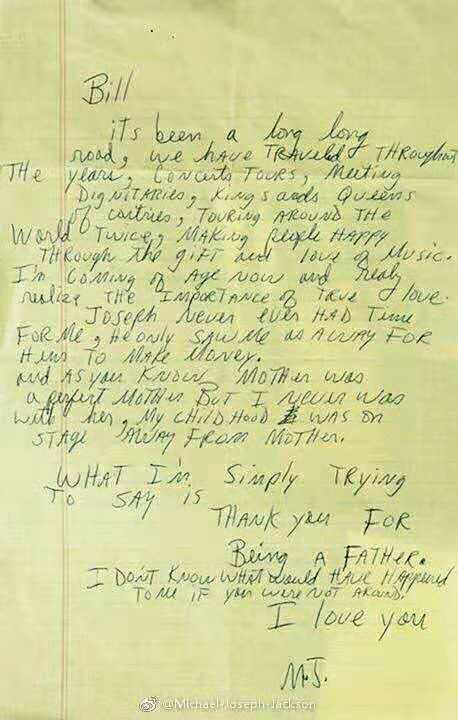 Bill
its been a long long
road, we have TRAVELED THROUGHOUT
THE years, Concerts TOURS, Meeting
DIGNITARIES, Kings ands Queens
of contries, TOURING AROUND THE
World Twice, MAKING people HAPPY
THROUGH the gIFT and love of Music.
I'm Coming of Age Now and realy
realize THE IMPORTANCE of TRUE love.
Joseph Never ever HAD Time
FOR Me, He only SAW Me as AWAY FOR
Hims To Make Money.
and AS you KNOW Mother was
a perfect Mother But I never was
with her, My CHILDHOOD WAS on
STAGE AWAY FROM MOTHER.
WHAT I'm Simply TRYING
TO SAY IS
THANK you FOR
Being A FATHER.
I DON'T KNOW WHAT would HAVE HAppened
TO Me IF you were NOT AROUND.
I love you
M.J.
@Michael-Joseph-Jackson